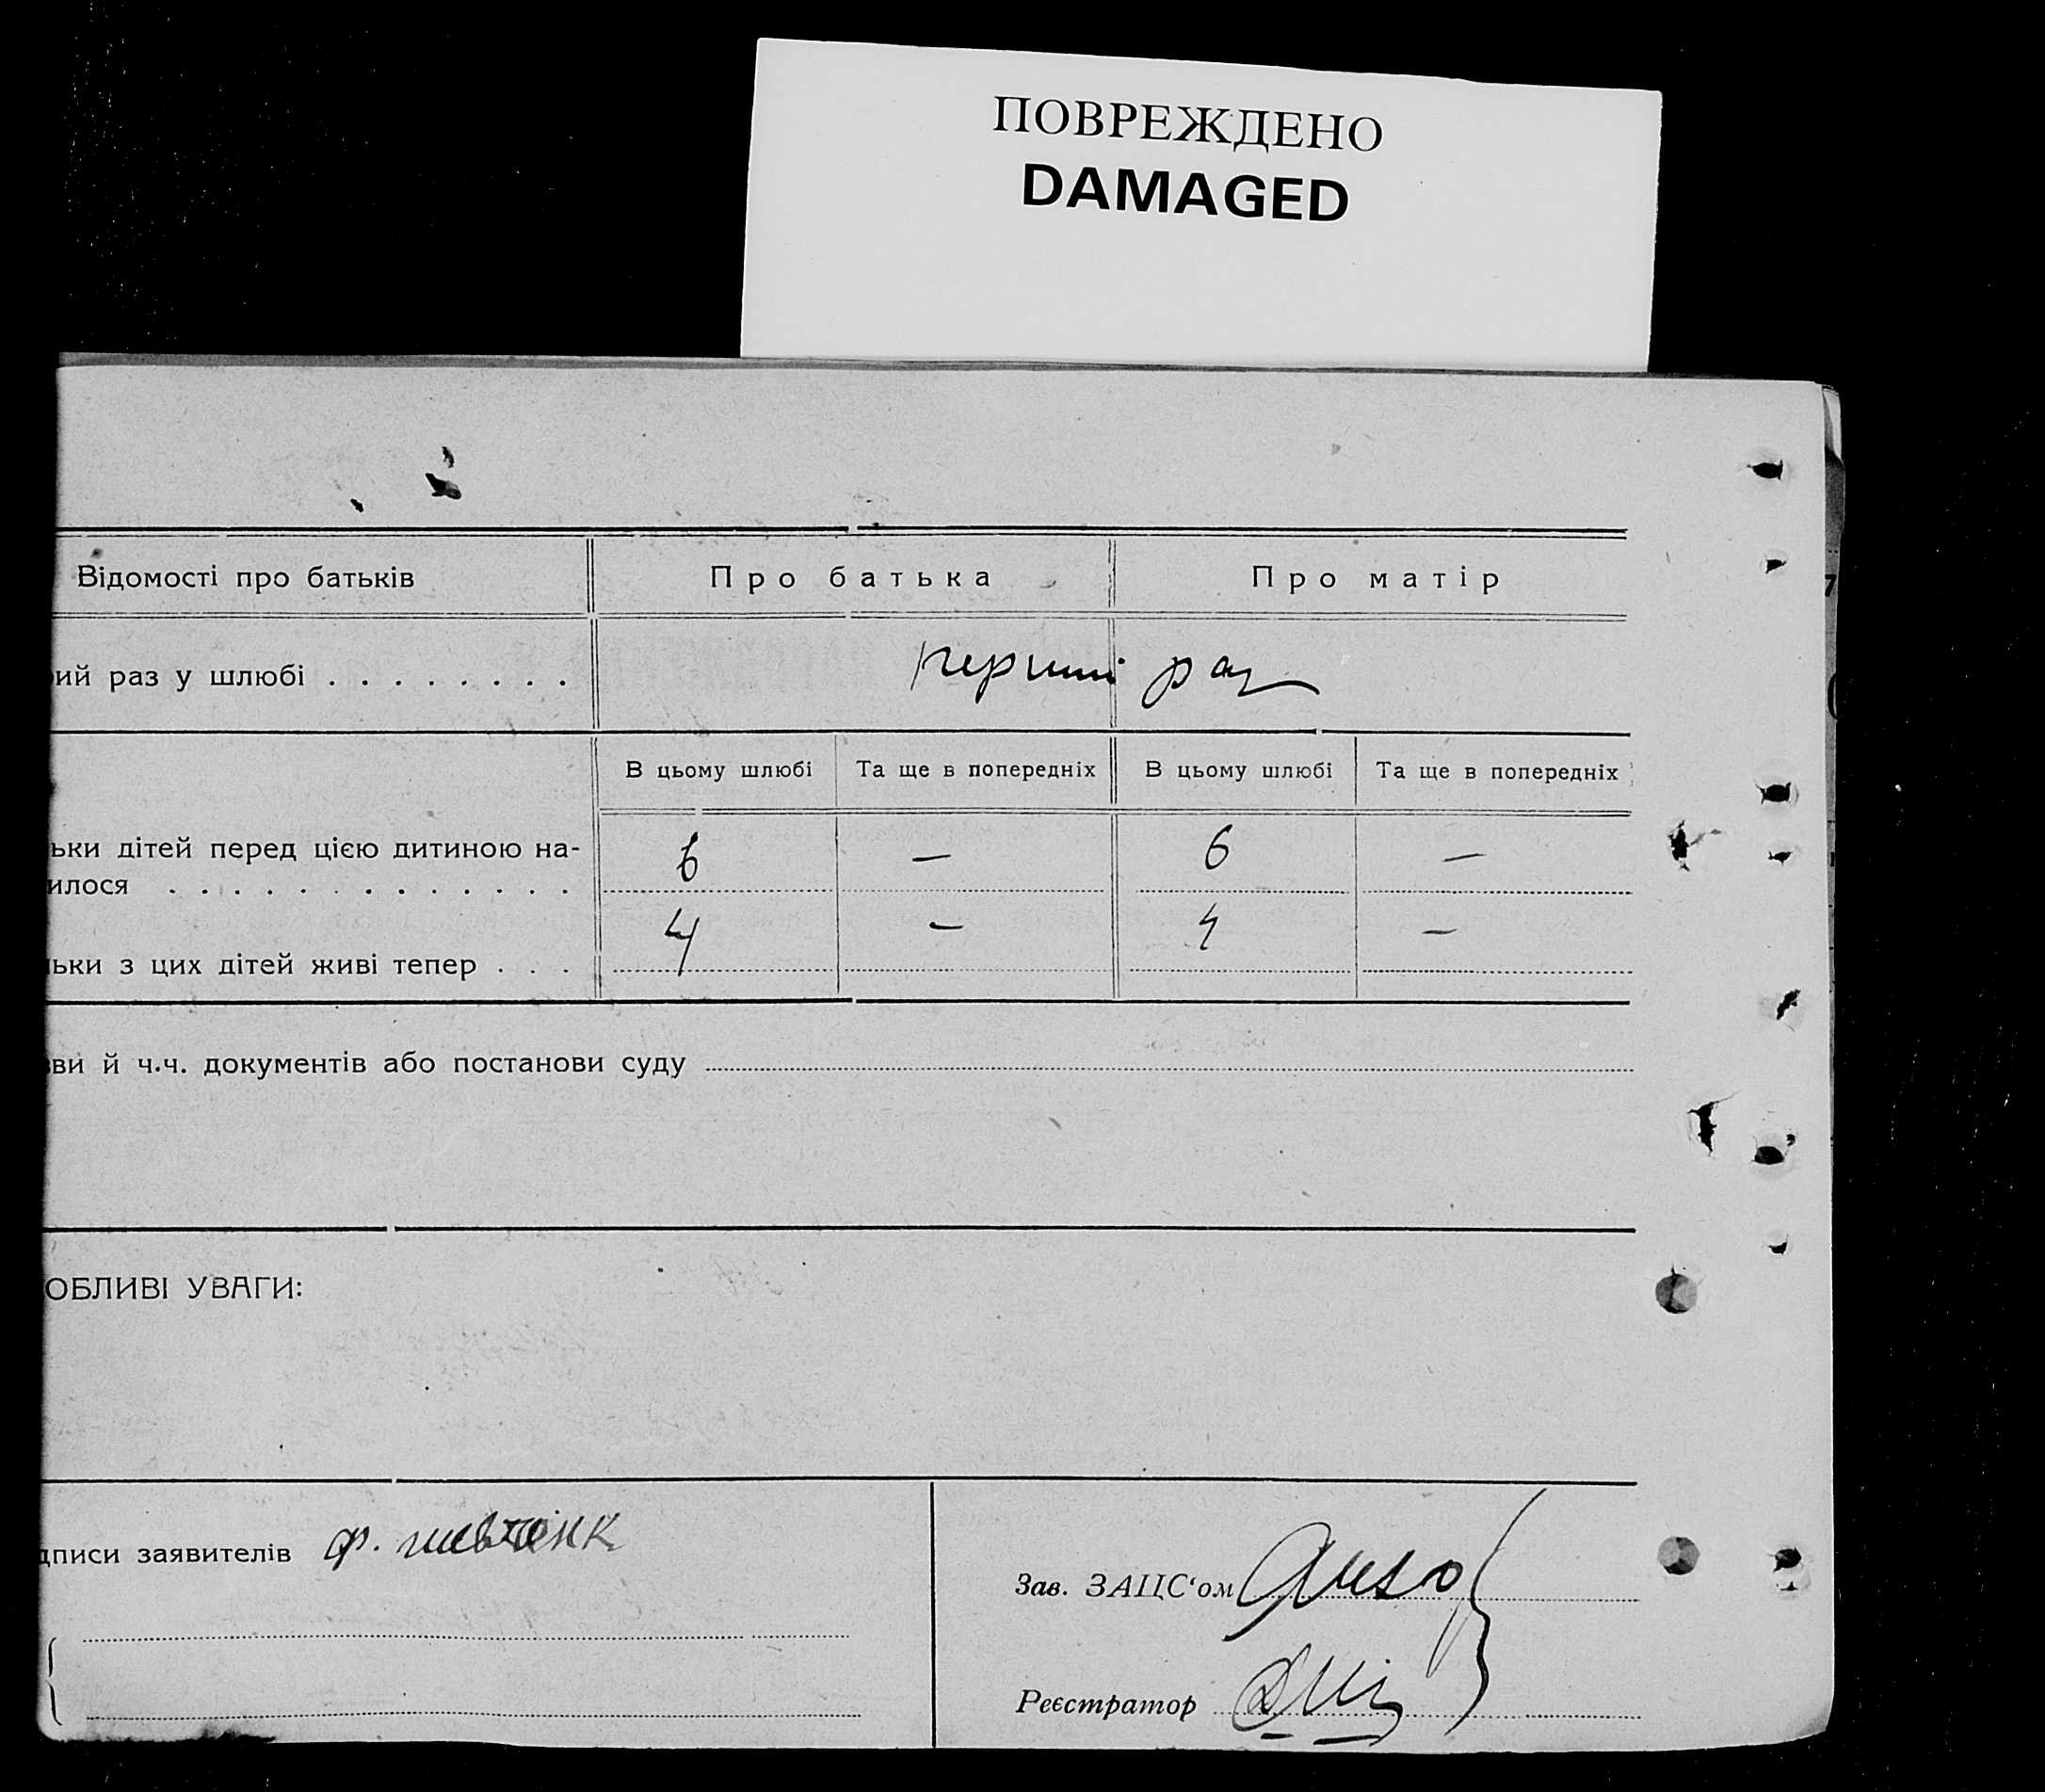 ПОВРЕЖДЕНО
DAMAGED
Відомості про батьків Про батька Про матір
ий раз у шлюбі . . . . . . . . перший раз
В цьому шлюбі Та ще в попередніх В цьому шлюбі Та ще в попередніх
ьки дітей перед цією дитиною на-
илося . . . . . . . . . . . . . 6 — 6 —
ьки з цих дітей живі тепер . . . 4 — 4 —
ви й ч.ч. документів або постанови суду
ОБЛИВІ УВАГИ:
дписи заявителів ф. шевченк
Зав. ЗАЦС'ом
Реєстратор